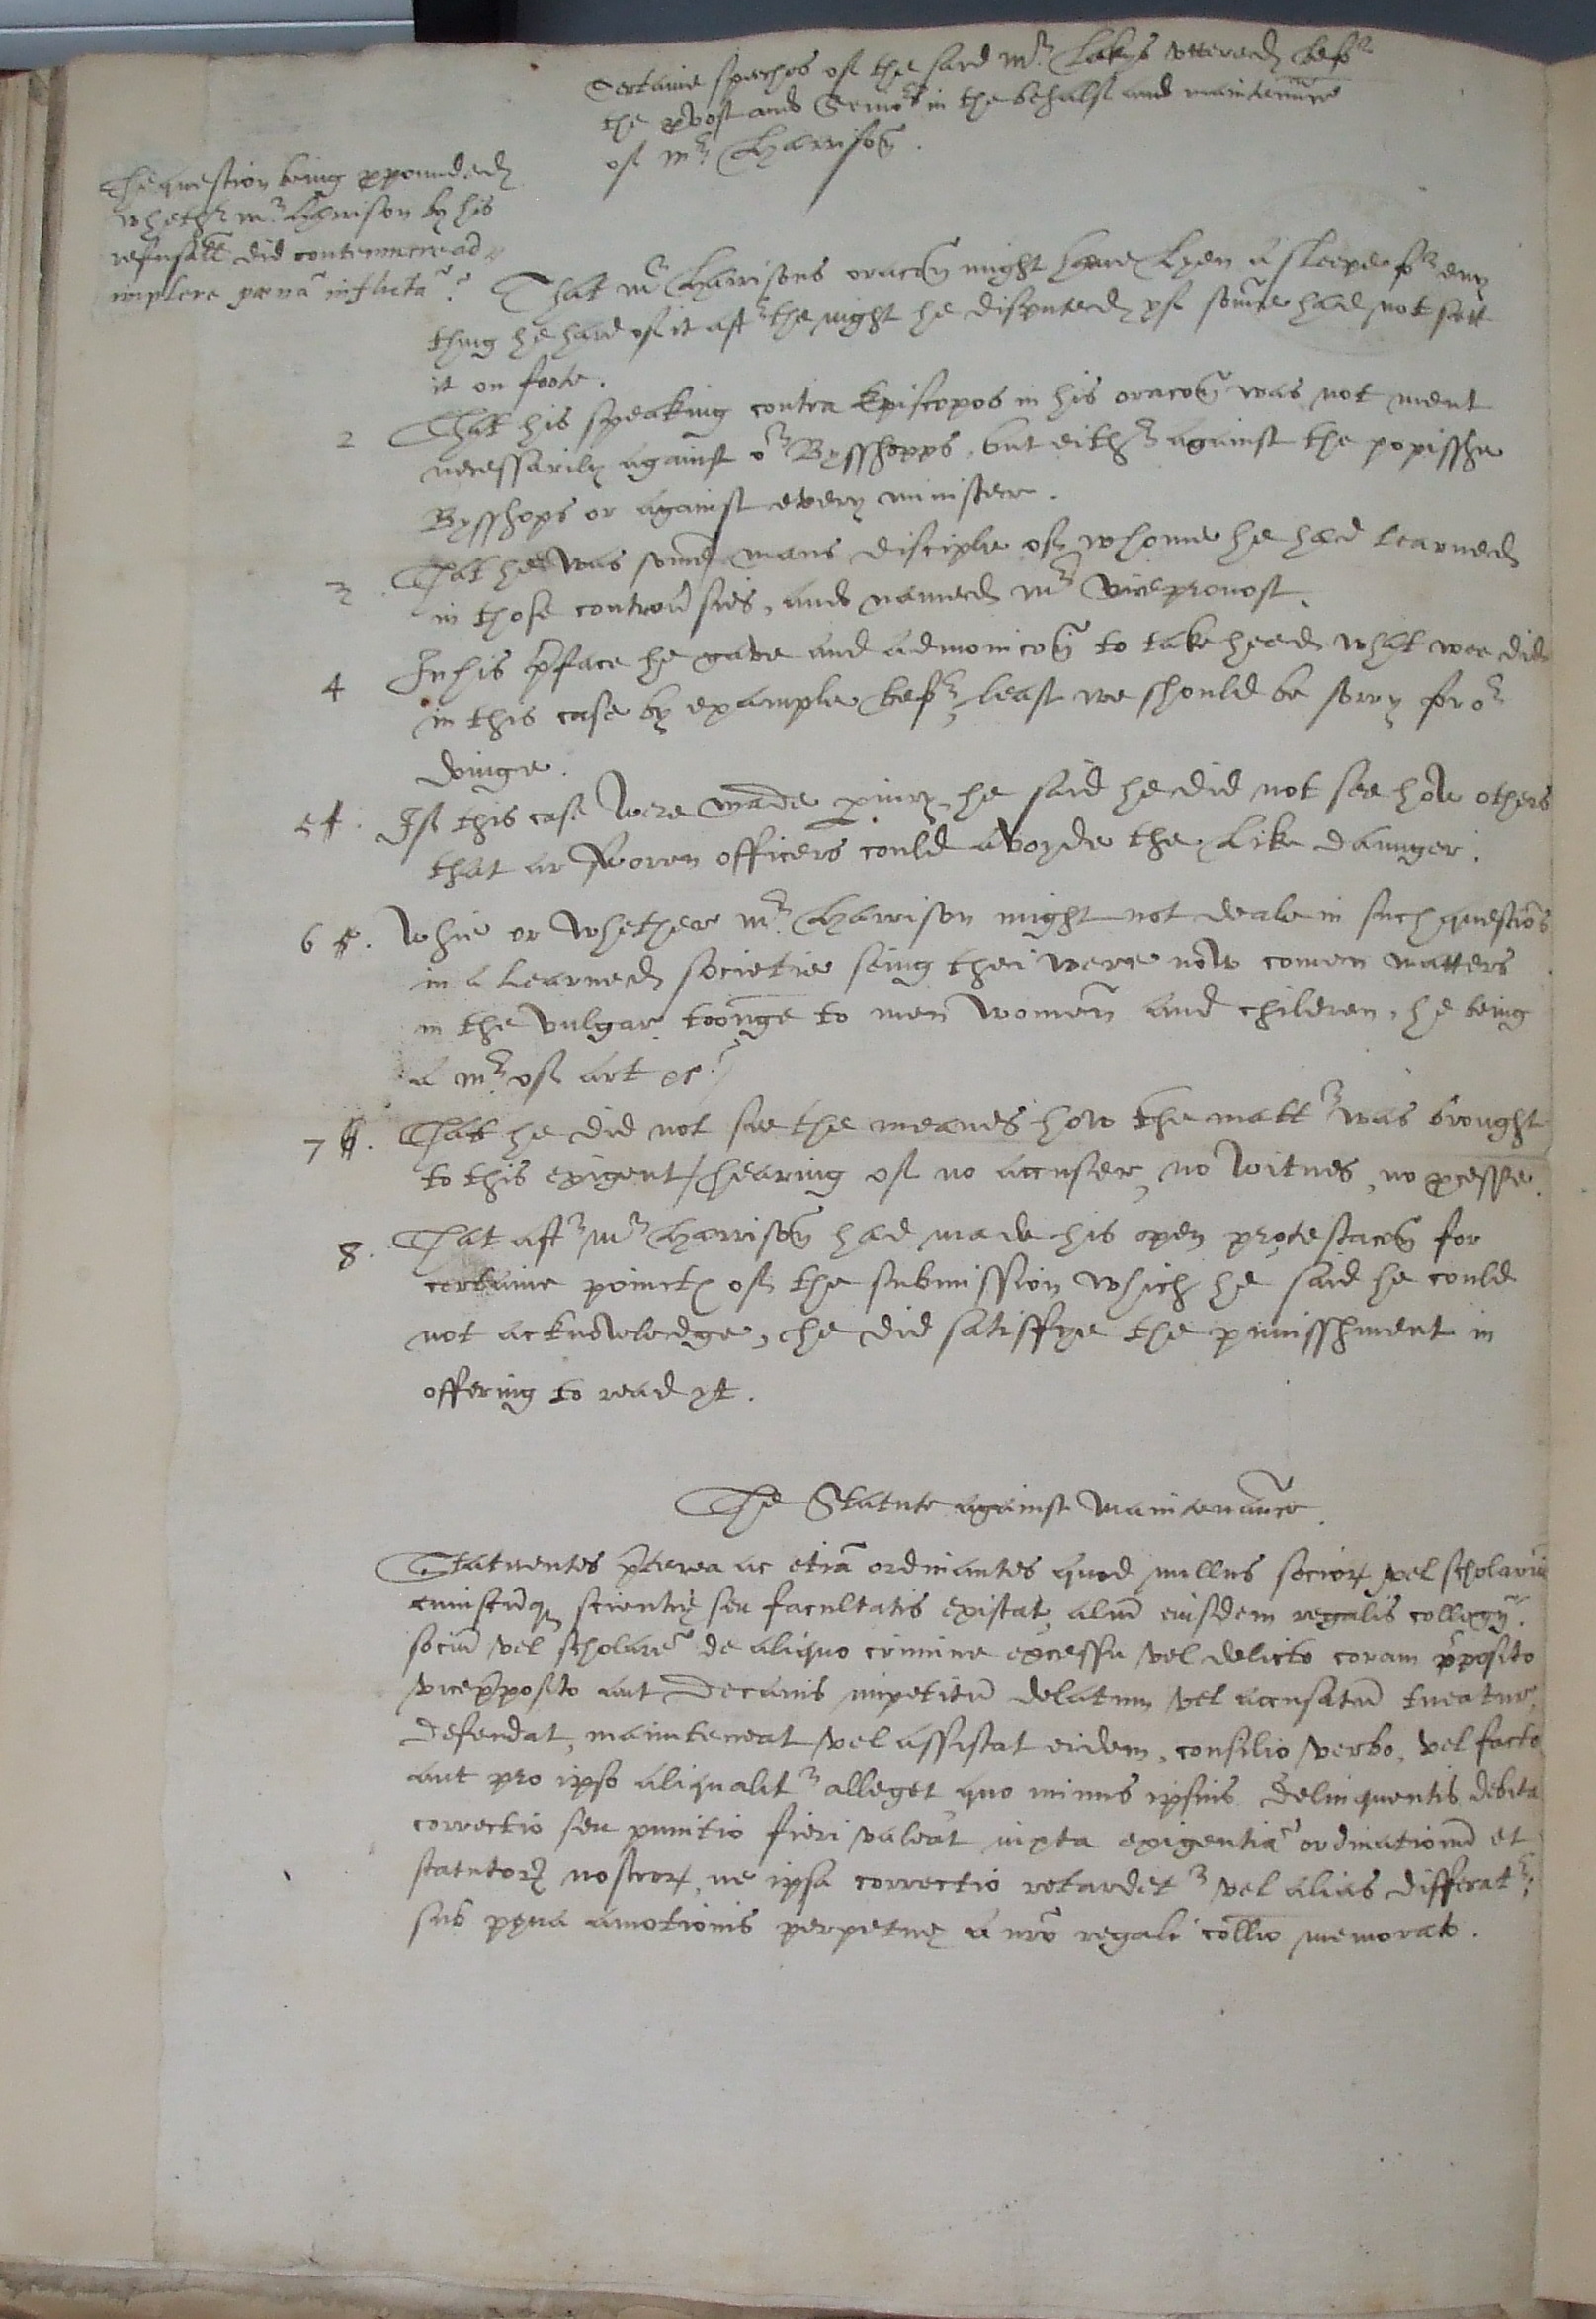 Certaine speaches of the said Mr Lakes vttered befr
the pvost and Seniors in the behalfe and maintenance
of mr Harrison.
The question being ppounded
whethr mr Harrison by his
refusall did contemnere ad=
implere pœnā inflictā?
That mr Harrisons oracon might have lyen a sleepe fr eny
thing he hard of it aftr the night he disputed yf some had not sett
it on foote.
2 That his speaking contra Episcopos in his oracon was not ment
necessarily against or Bysshopps, but eithr against the popisshe
Bysshops or against every minister.
3 That he was some mans disciple of whome he had learned
in those controusies, and named mr viceprouost.
4 In his pface he gave and admonicon to take heed what wee did
in this case by example befr, least we should be sorry for or
doinge.
5. If this case were made piury, he said he did not see how others
that ar sworen officers could avoyde the like daunger.
6. Whie or whether mr Harrison might not deale in such questiōs
in a learned societie seing thei were now comen matters
in the vulgar toonge to men women and children, he being
a mr of art &c?
7. That he did not see the meanes how the mattr was brought
to this exigent / hearing of no accuser, no witnes, no pcesse.
8. That aftr mr Harrison had made his open protestacon for
certaine poinctes of the submission which he said he could
not acknowledge, he did satisffye the punisshment in
offering to read yt.
The Statute against Maintenaūce.
Statuentes pterea ac etiā ordinantes quod nullus socior vel scholariū
cuiuscūq scientię seu facultatis existat, aliū eiusdem regalis collegij
sociū vel scholarē de aliquo crimine excessu vel delicto coram pposito
vicepposito aut Decanis impetitū delatum vel accusatū tueatur,
defendat, mainteneat vel assistat eidem, consilio verbo, vel facto
aut pro ipso aliqualitr alleget quo minus ipsius delinquentis debita
correctio seu punitio fieri valeat iuxta exigentiā ordinationū et
statutor nostror, ne ipsa correctio retardetr vel alias differatr;
sub pęna amotionis perpetuę a nro regali collio memorato.